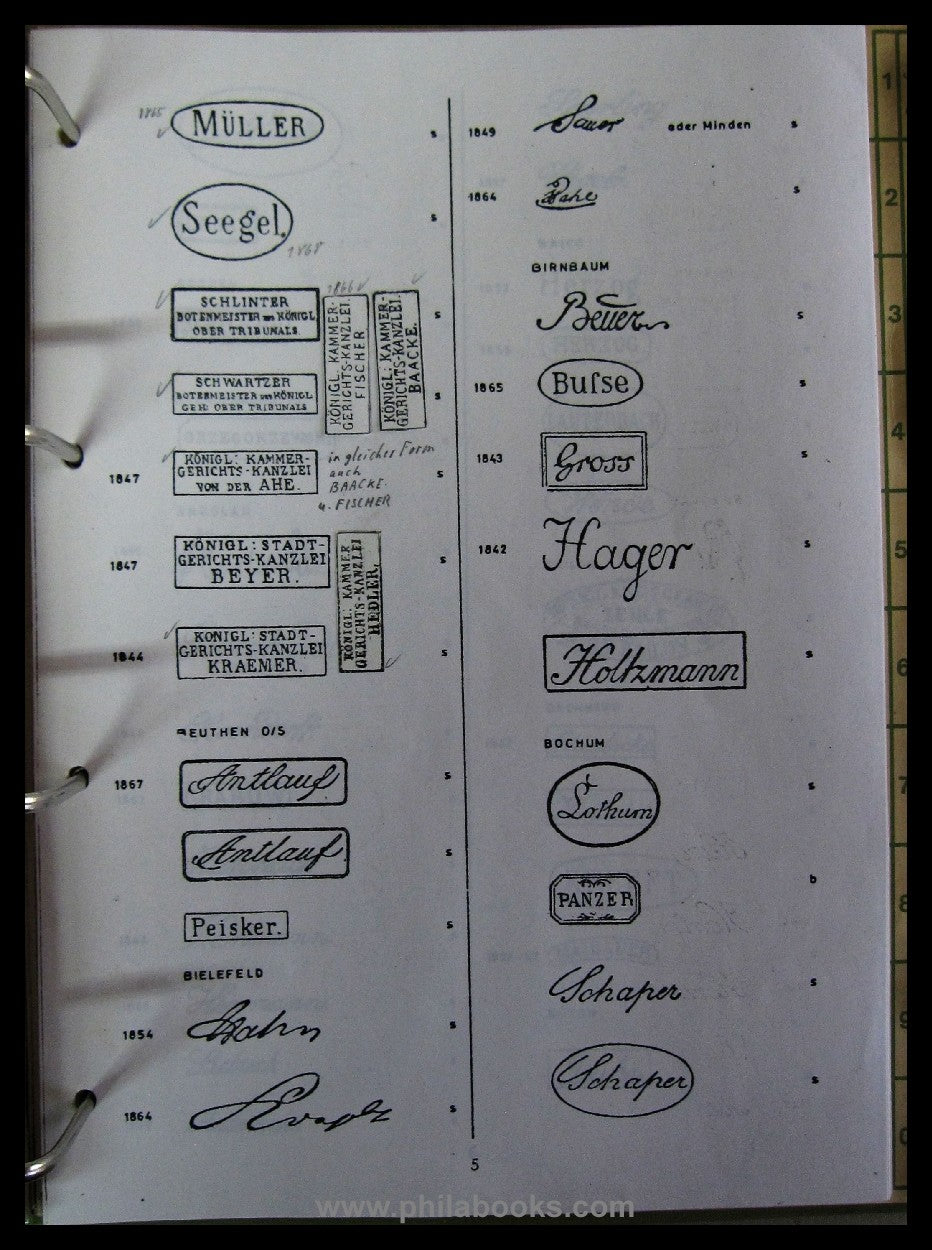 1865
MÜLLER s
Seegel. s
1868
SCHLINTER
BOTENMEISTER von KÖNIGL
OBER TRIBUNALS. s
1866
KÖNIGL. KAMMER-
GERICHTS-KANZLEI.
FISCHER
KÖNIGL: KAMMER-
GERICHTS-KANZLEI.
BAACKE.
SCHWARTZER
BOTENMEISTER von KÖNIGL
GEH OBER TRIBUNALS s
1847
KÖNIGL: KAMMER-
GERICHTS-KANZLEI
VON DER AHE. s
in gleicher Form
auch
BAACKE.
u. FISCHER
1847
KÖNIGL: STADT-
GERICHTS-KANZLEI
BEYER. s
KÖNIGL: KAMMER
GERICHTS-KANZLEI
HEDLER.
1844
KONIGL: STADT-
GERICHTS-KANZLEI
KRAEMER. s
BEUTHEN O/S
1867 Antlauf s
Antlauf s
Peisker. s
BIELEFELD
1854 Hahn s
1864 s
1849 Sauer oder Minden s
1864 s
BIRNBAUM
Beuer s
1865 Bufse s
1843 Gross s
1842 Hager s
Holtzmann s
BOCHUM
Lothum s
PANZER b
Schaper s
Schaper s
5
1
2
3
4
5
6
7
8
9
0
www.philabooks.com